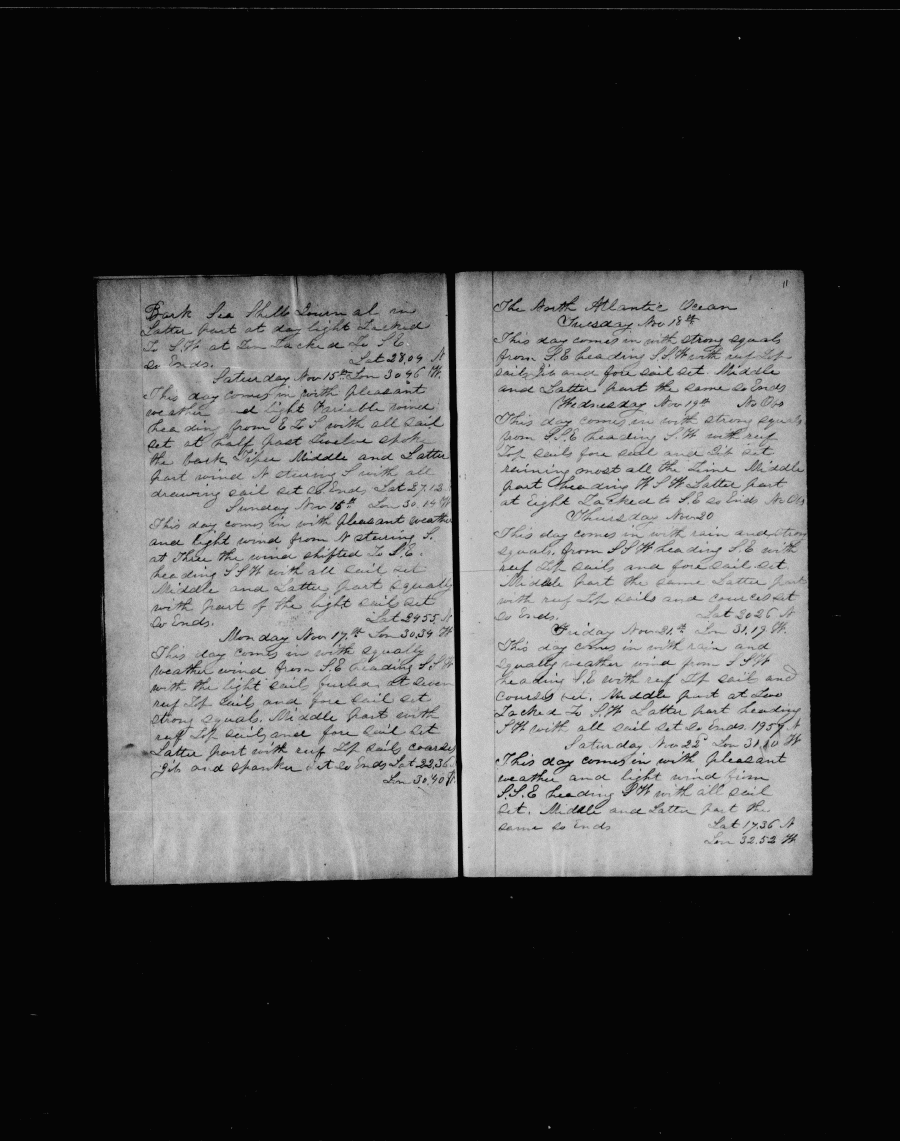 Bark Sea Shell Journal in
Latter part at day light Tacked
To S.W at Ten Tacked To S.E
so Ends. Lat 28,09 N
Saturday Nov 15th Lon 30,46 W.
This day comes in with pleasant
weather and light variable wind
heading from E To S with all sail
set at half past twelve spoke
the bark Middle and Latter
part wind N steering S with all
drawing sail set So Ends Lat 27.12
Sunday Nov 16th Lon 30,14 W
This day comes in with pleasant weather
and light wind from N steering S.
at Three the wind shifted To S.E.
heading S S W with all sail set
Middle and Latter part squally
with part of the light sails set
So Ends. Lat 24 55 N
Monday Nov 17.th Lon 30,34 W
This day comes in with squally
weather wind from S.E heading S.S.W
with the light sail furled at seven
reef Top sail and fore sail set
strong squals. Middle part with
reef Top sail and fore sail set
Latter part with reef Top sails courses
Jib and spanker set so Ends Lat 22,36
Lon 30,40 W.
11
The North Atlantic Ocean
Tuesday Nov 18th
This day comes in with strong squals
from S.E heading S S W with reef Top
sails Jib and fore sail set Middle
and Latter part the same so Ends
Wednesday Nov 19th No Obs
This day comes in with strong squals
from S.S.E heading S.W with reef
Top sails fore sail and Jib set
raining most all the Time Middle
part heading W S W Latter part
at Eight Tacked to S.E so Ends No Obs
Thursday Nov 20
This day comes in with rain and strong
squals. from S S W heading S.E with
reef Top sails and fore sail set
Middle part the same Latter part
with reef Top sails and cources set
So Ends. Lat 20 26 N
Friday Nov 21.st Lon 31,19 W.
This day comes in with rain and
squally weather wind from S S W
heading S.E with reef Top sail and
courses set. Middle part at Two
Tacked To S.W Latter part heading
S W with all sail set So Ends. 19 59 N
Saturday Nov 22d Lon 31,40 W
This day comes in with pleasant
weather and light wind from
S.S.E heading S W with all sail
set. Middle and Latter part the
same so Ends Lat 17,36 N
Lon 32.52 W